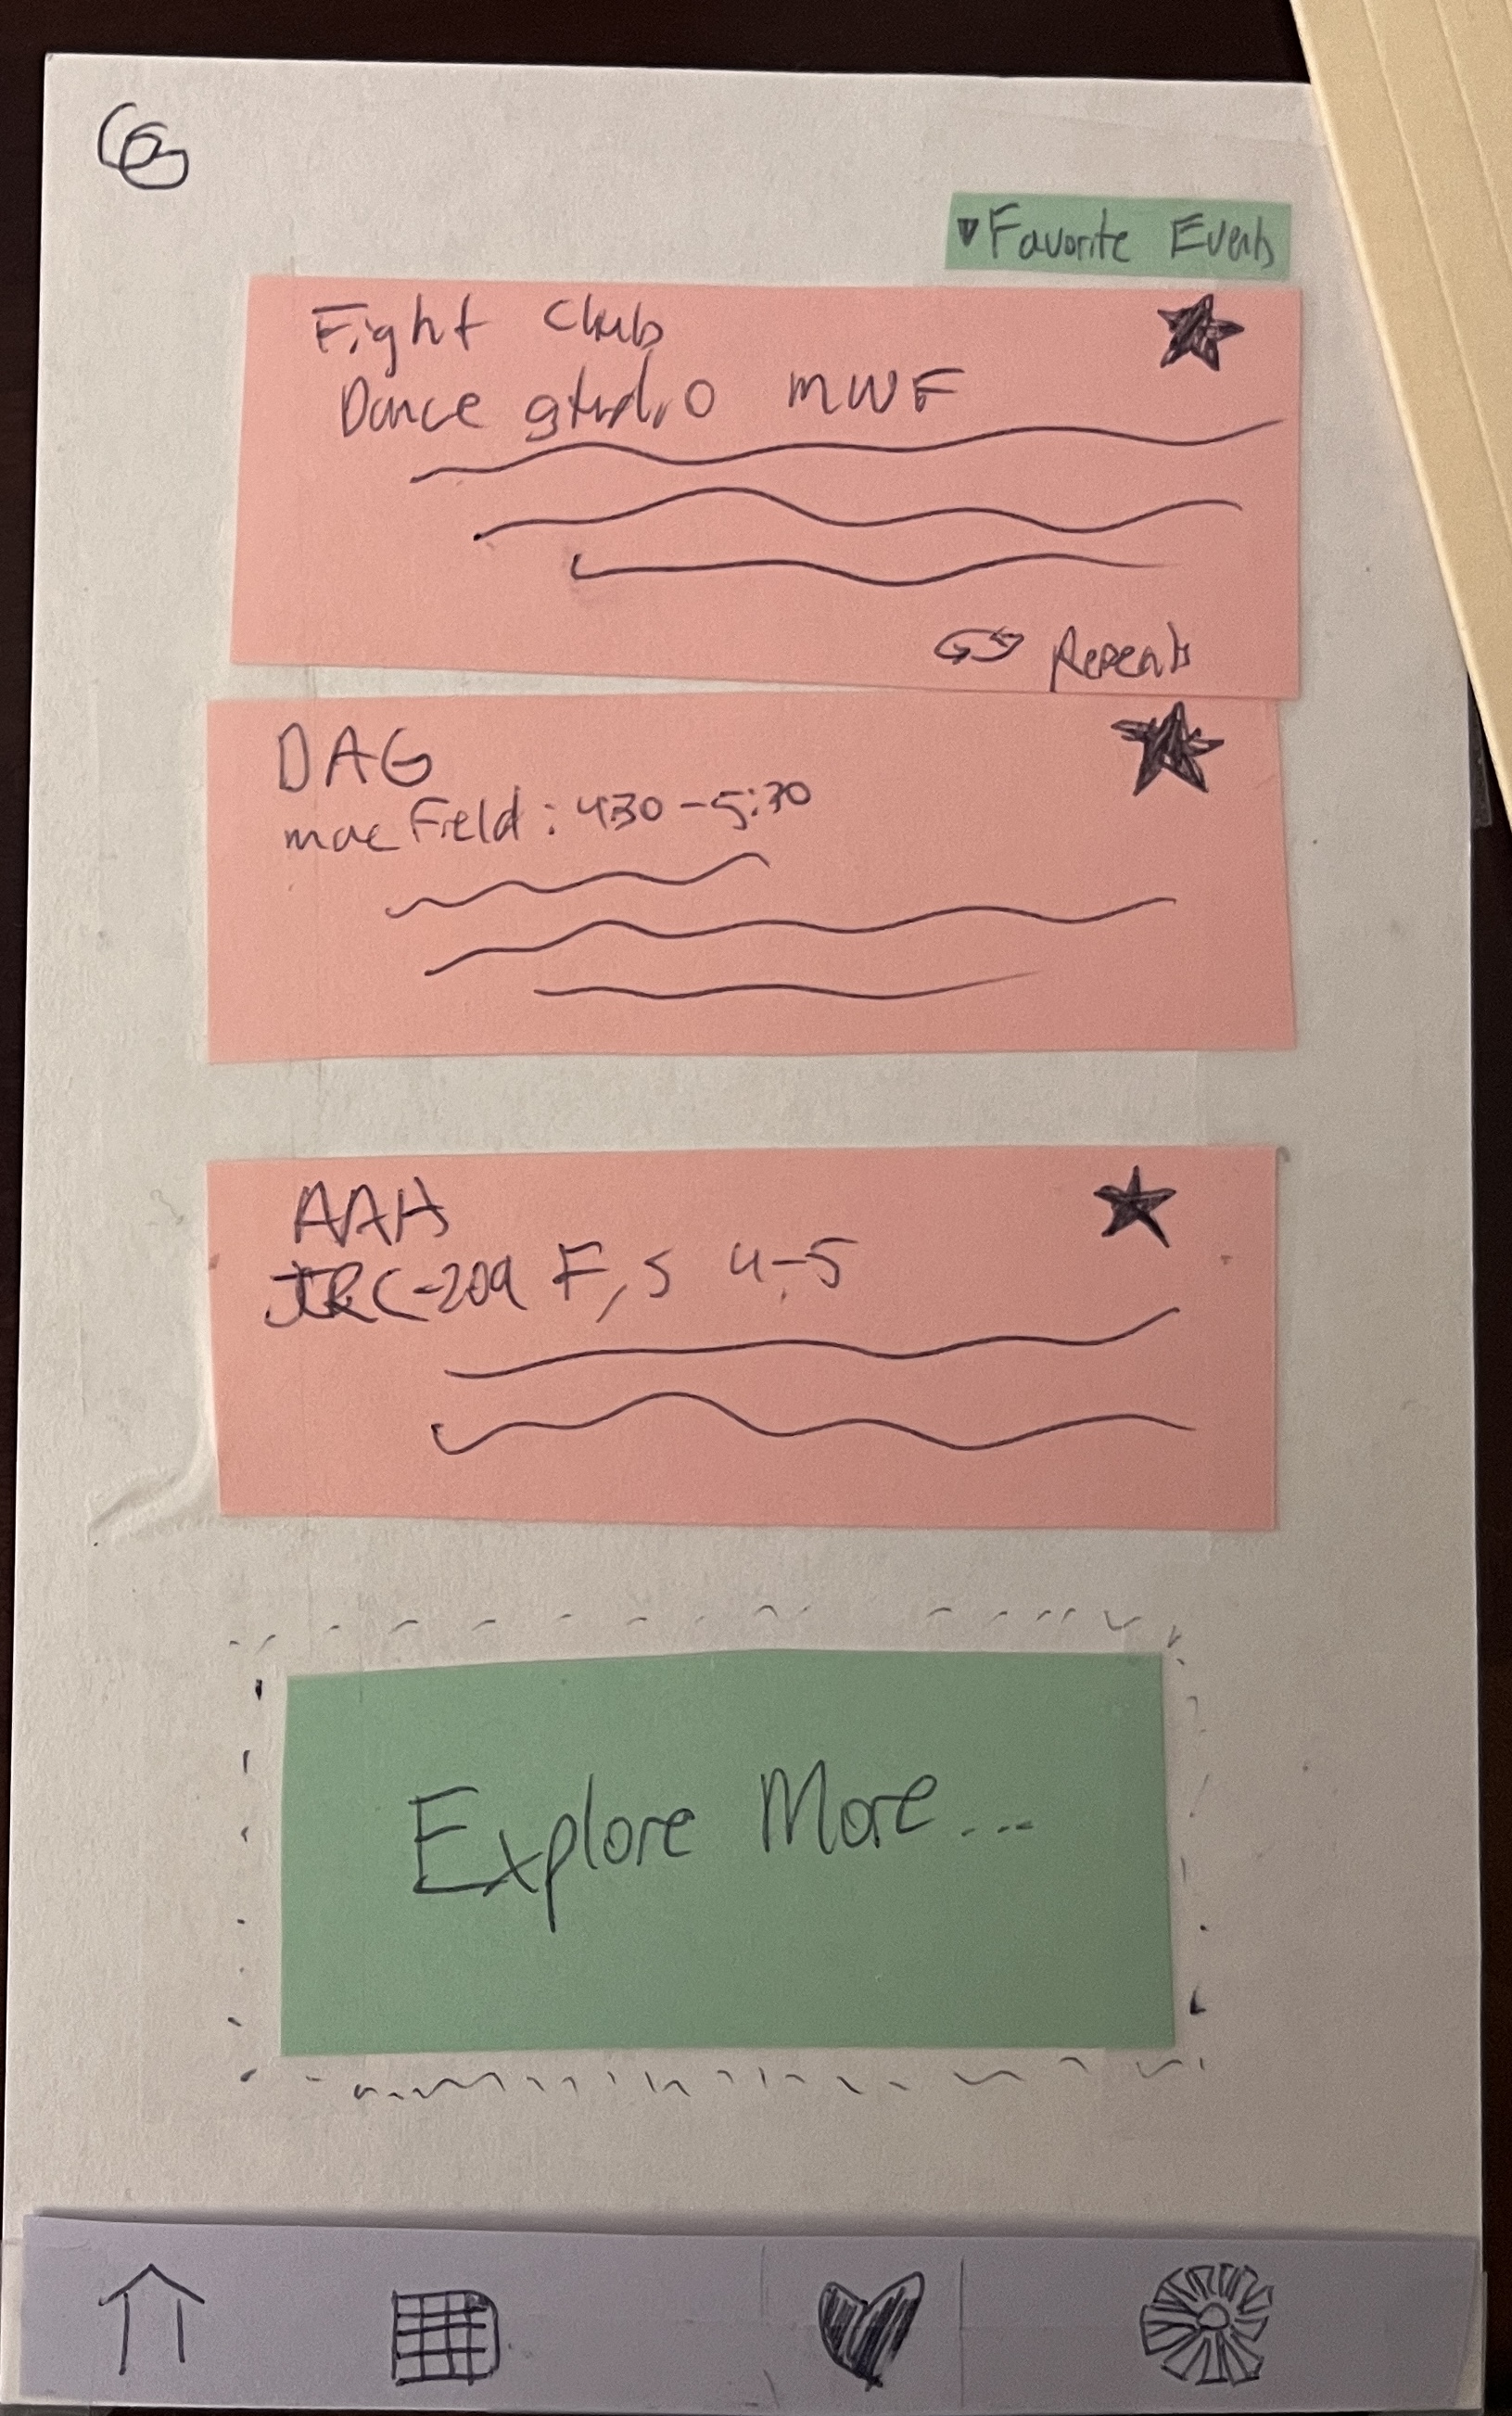 ▾Favorite Events
Fight Club
Dance studio MWF
Repeats
DAG
mac Field: 430-5:30
AAH
JRC-209 F,S 4-5
Explore More...